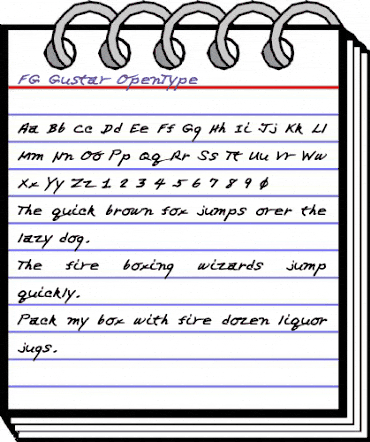 FG Gustav OpenType
Aa Bb Cc Dd Ee Ff Gg Hh Ii Jj Kk Ll
Mm Nn Oo Pp Qq Rr Ss Tt Uu Vv Ww
Xx Yy Zz 1 2 3 4 5 6 7 8 9 0
The quick brown fox jumps over the
lazy dog.
The fire boxing wizards jump
quickly.
Pack my box with fire dozen liquor
jugs.